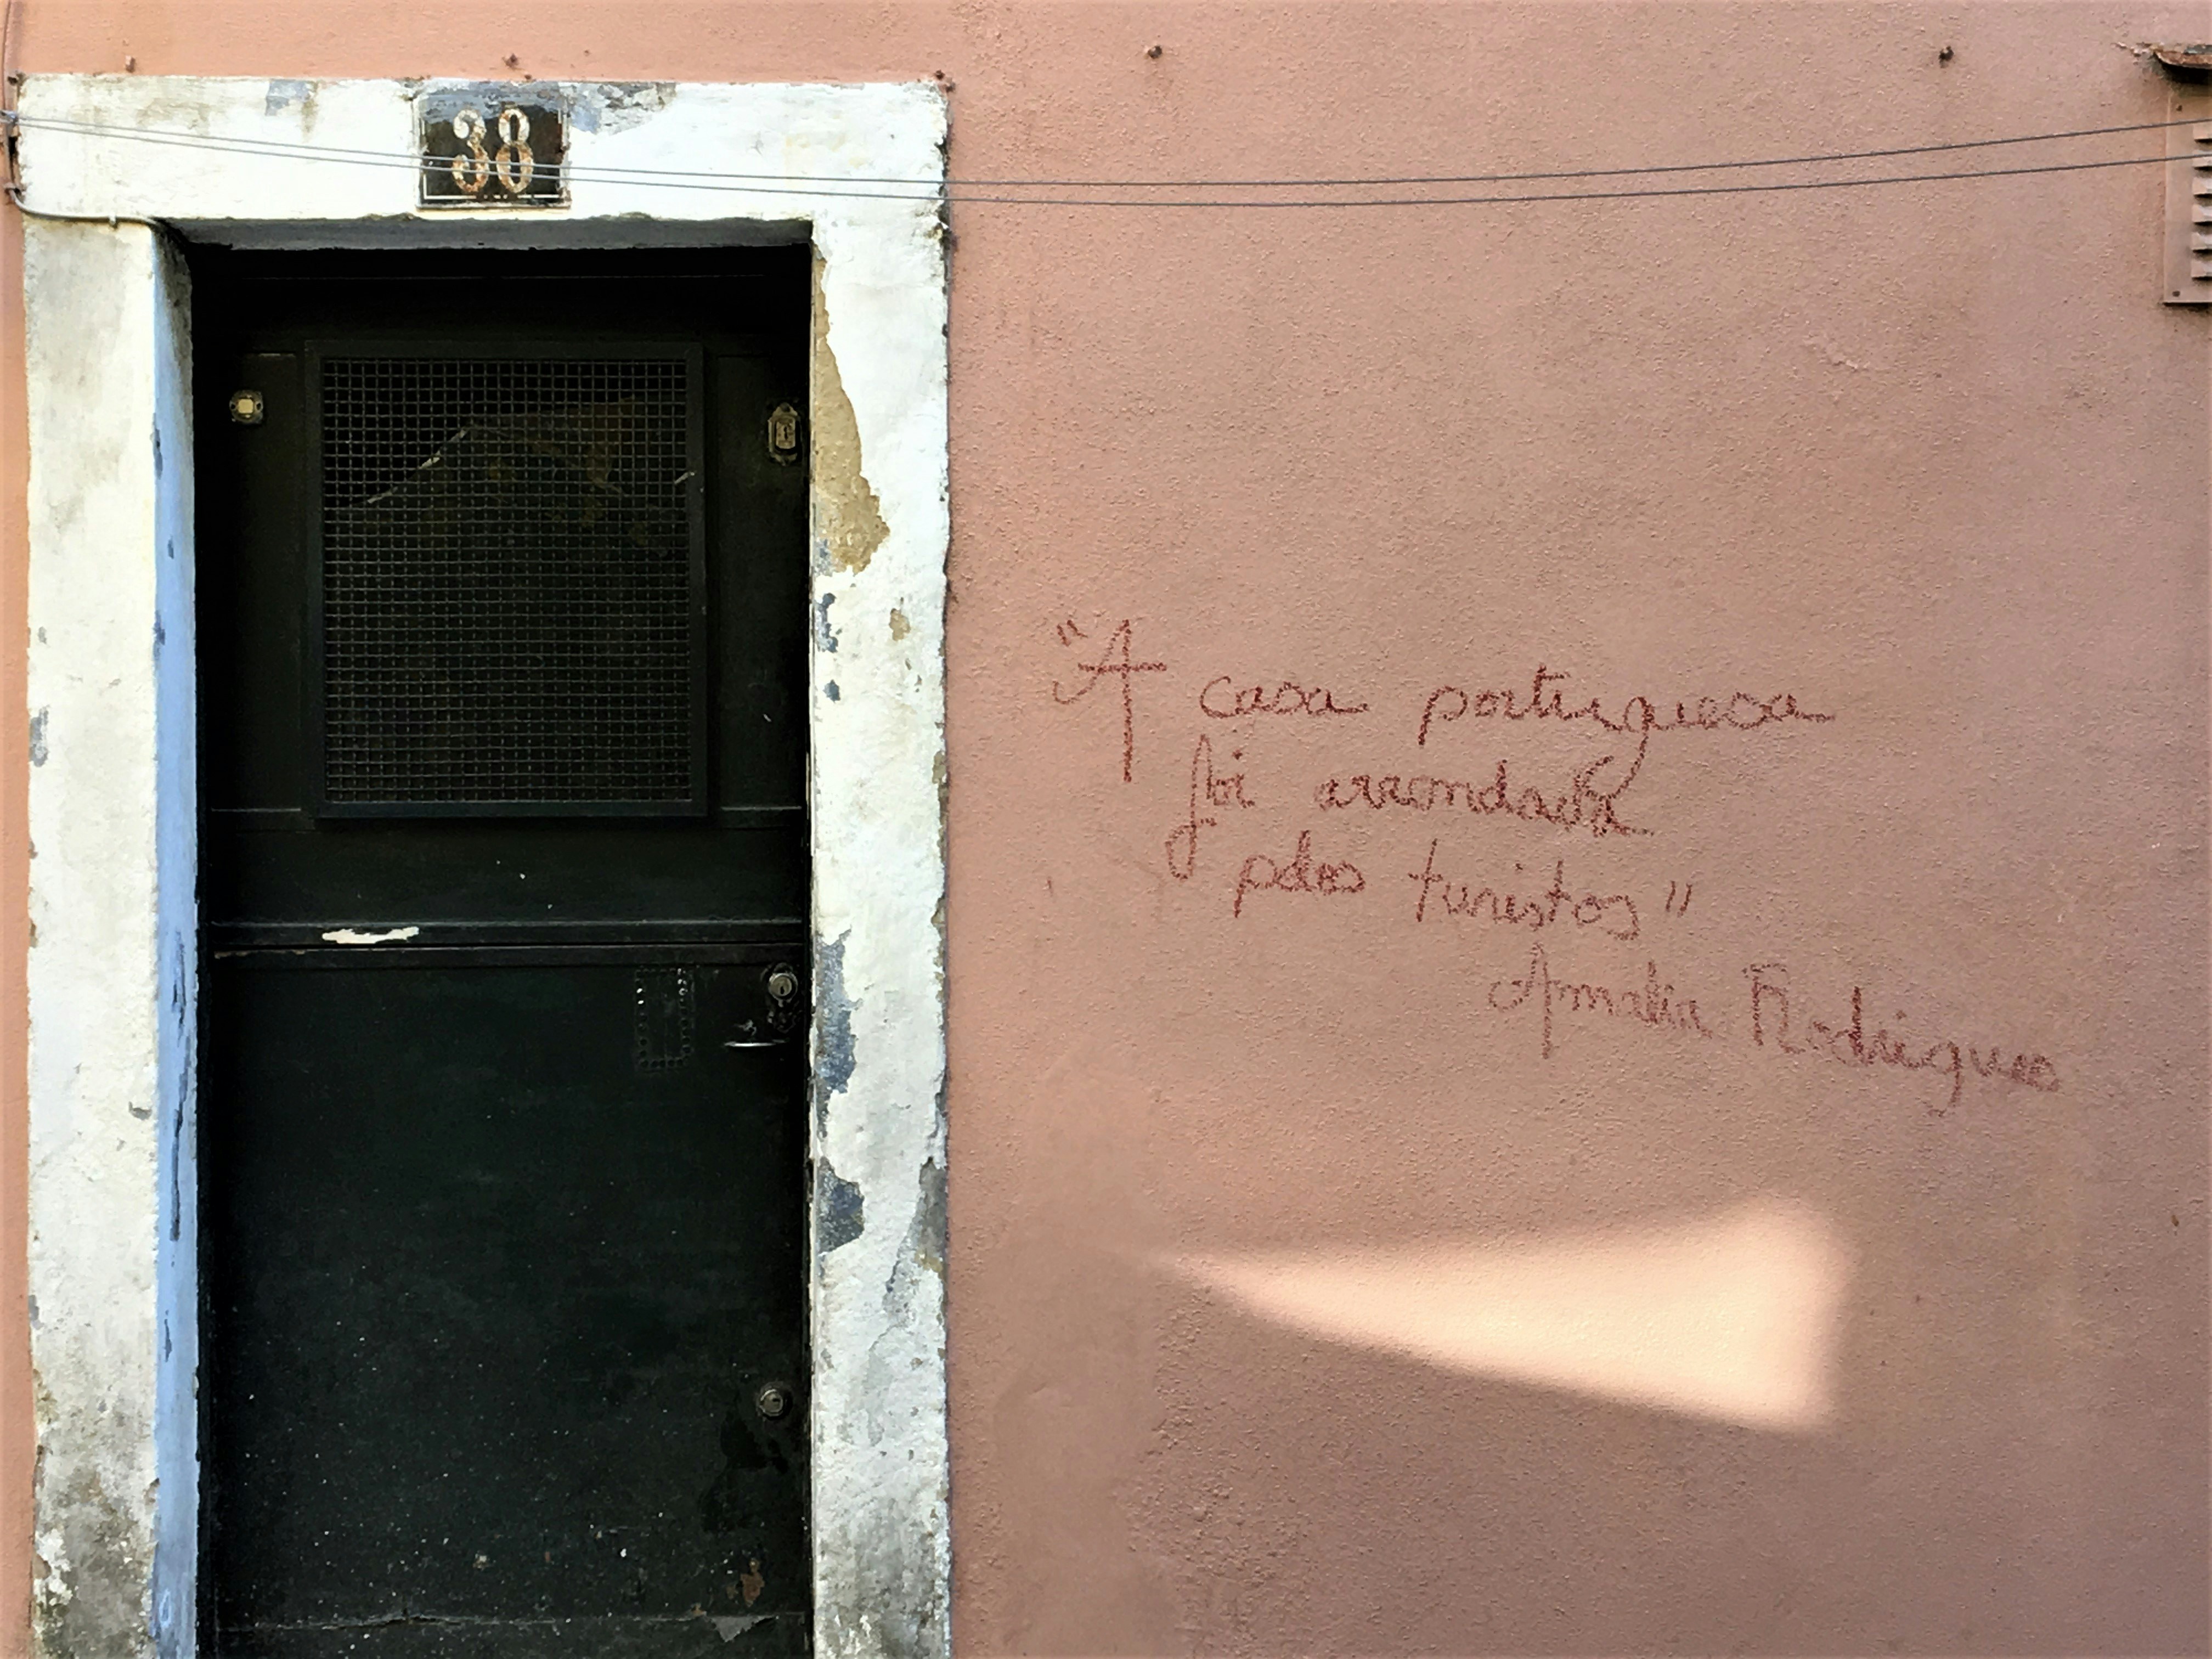 38
"A casa portuguesa
foi arrendada
pelos turistas"
Amalia Rodrigues